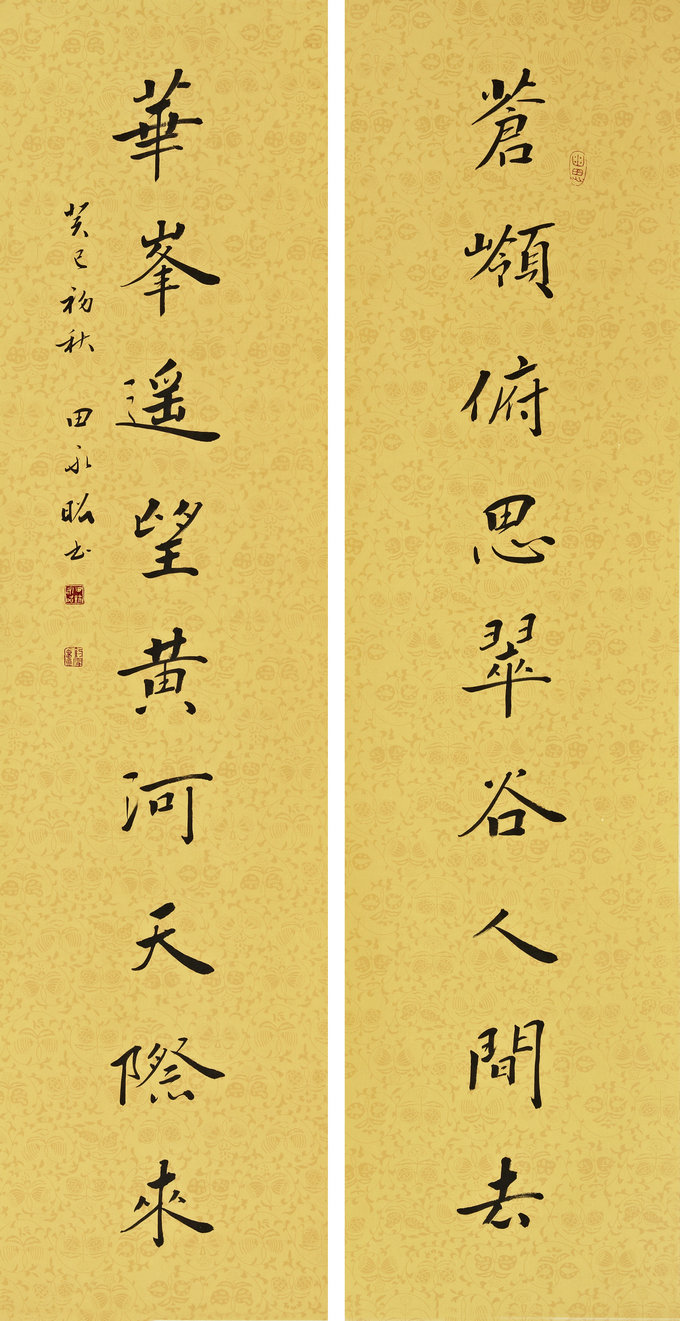 蒼嶺俯思翠谷人間去
華峯遥望黄河天際來
癸巳初秋 田永昭书